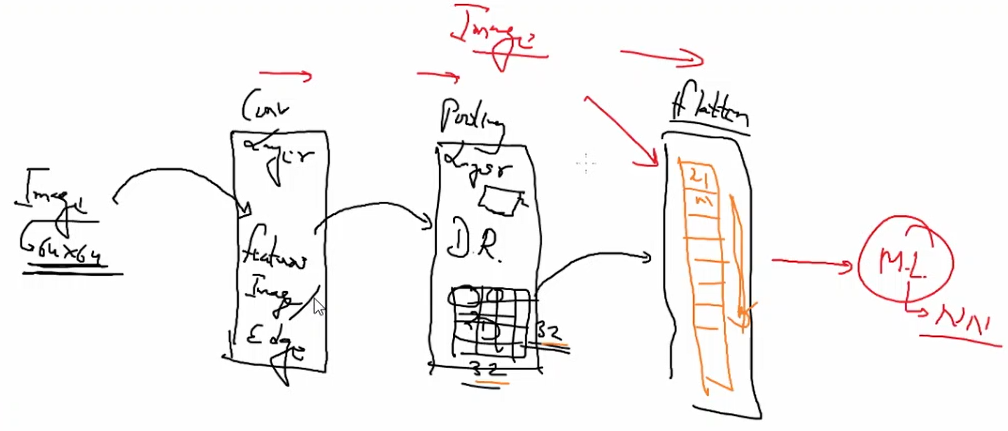 Image
Image
64x64
Conv
Layer
features
Image
Edge
Pooling
Layer
D.R.
32
32
flatten
21
M.L.
NN